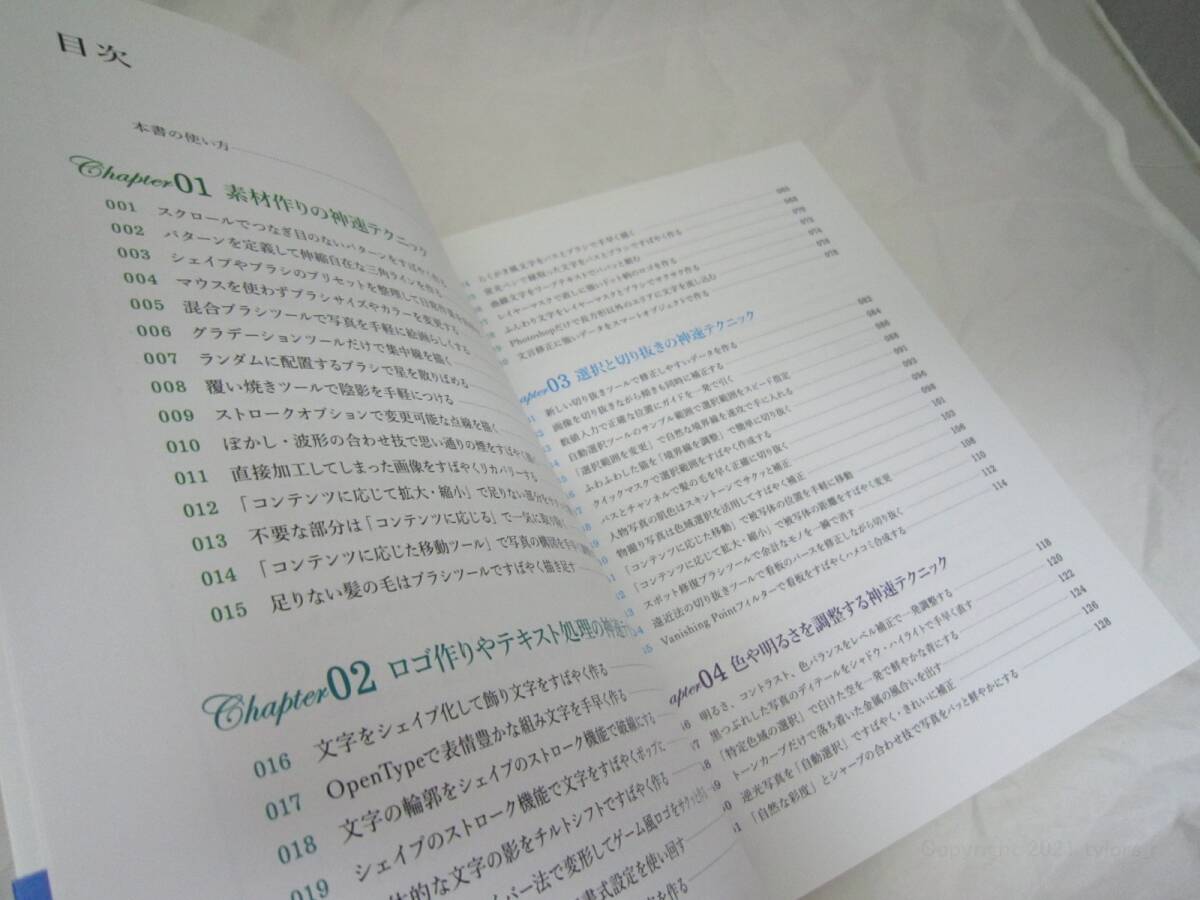 目次
本書の使い方
Chapter01 素材作りの神速テクニック
001 スクロールでつなぎ目のないパターンをすばやく作る
002 パターンを定義して伸縮自在な三角ラインを作る
003 シェイプやブラシのプリセットを整理して作業
004 マウスを使わずブラシサイズやカラーを変更する
005 混合ブラシツールで写真を手軽に絵画らしくする
006 グラデーションツールだけで集中線を描く
007 ランダムに配置するブラシで星を散りばめる
008 覆い焼きツールで陰影を手軽につける
009 ストロークオプションで変更可能な点線を描く
010 ぼかし・波形の合わせ技で思い通りの煙をすばやく
011 直接加工してしまった画像をすばやくリカバリーする
012 「コンテンツに応じて拡大・縮小」で足りない部分を
013 不要な部分は「コンテンツに応じる」で一気に取り
014 「コンテンツに応じた移動ツール」で写真の構図を手
015 足りない髪の毛はブラシツールですばやく描き足す
Chapter02 ロゴ作りやテキスト処理の神速テ
016 文字をシェイプ化して飾り文字をすばやく作る
017 OpenTypeで表情豊かな組み文字を手早く作る
018 文字の輪郭をシェイプのストローク機能で破線にする
019 シェイプのストローク機能で文字をすばやくポップに
体的な文字の影をチルトシフトですばやく作る
イパー法で変形してゲーム風ロゴをサクッと
書式設定を使い回す
を作る
らくがき風文字をパスとブラシで手早く描く 066
蛍光ペンで縁取った文字をパスとブラシですばやく作る 068
曲線文字をワープテキストでパパッと組む 070
レイヤーマスクで直しに強いドット柄のロゴを作る 072
ふんわり文字をレイヤーマスクとブラシでサクサク作る 074
Photoshopだけで長方形以外のエリアに文字を流し込む 076
文言修正に強いデータをスマートオブジェクトで作る 078
apter03 選択と切り抜きの神速テクニック
新しい切り抜きツールで修正しやすいデータを作る 082
画像を切り抜きながら傾きも同時に補正する 084
数値入力で正確な位置にガイドを一発で引く 086
自動選択ツールのサンプル範囲で選択範囲をスピード指定 088
「選択範囲を変更」で自然な境界線を速攻で手に入れる 091
ふわふわした猫を「境界線を調整」で簡単に切り抜く 093
クイックマスクで選択範囲をすばやく作成する 096
パスとチャンネルで髪の毛を早く正確に切り抜く 098
人物写真の肌色はスキントーンでサクッと補正 101
物撮り写真は色域選択を活用してすばやく補正 103
「コンテンツに応じた移動」で被写体の位置を手軽に移動 106
「コンテンツに応じて拡大・縮小」で被写体の距離をすばやく変更 108
スポット修復ブラシツールで余計なモノを一瞬で消す 110
遠近法の切り抜きツールで看板のパースを修正しながら切り抜く 112
Vanishing Pointフィルターで看板をすばやくハメコミ合成する 114
apter04 色や明るさを調整する神速テクニック
明るさ、コントラスト、色バランスをレベル補正で一発調整する 118
黒つぶれした写真のディテールをシャドウ・ハイライトで手早く直す 120
「特定色域の選択」で白けた空を一発で鮮やかな青にする 122
トーンカーブだけで落ち着いた金属の風合いを出す 124
逆光写真を「自動選択」ですばやく・きれいに補正 126
「自然な彩度」とシャープの合わせ技で写真をパッと鮮やかにする 128
Copyright 2021 tylors